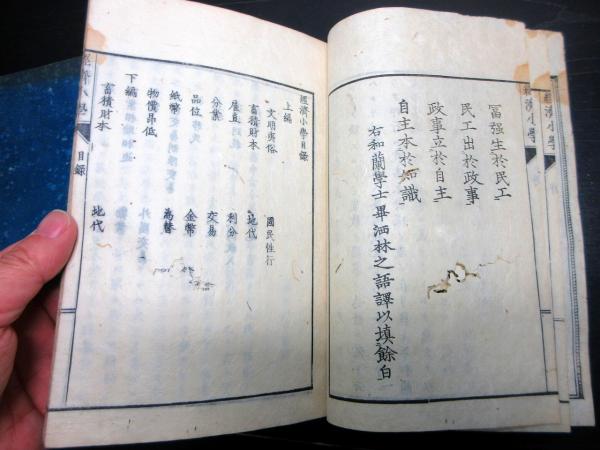 富强生於民工
民工出於政事
政事立於自主
自主本於知識
右和蘭學士畢洒林之語譯以填餘白
經濟小學目録
上編
文明夷俗 國民性行
畜積財本 地代
雇直 利分
分業 交易
品位 金幣
紙幣 為替
物價昂低
下編
畜積財本 地代
經濟小學 目録
經濟小學